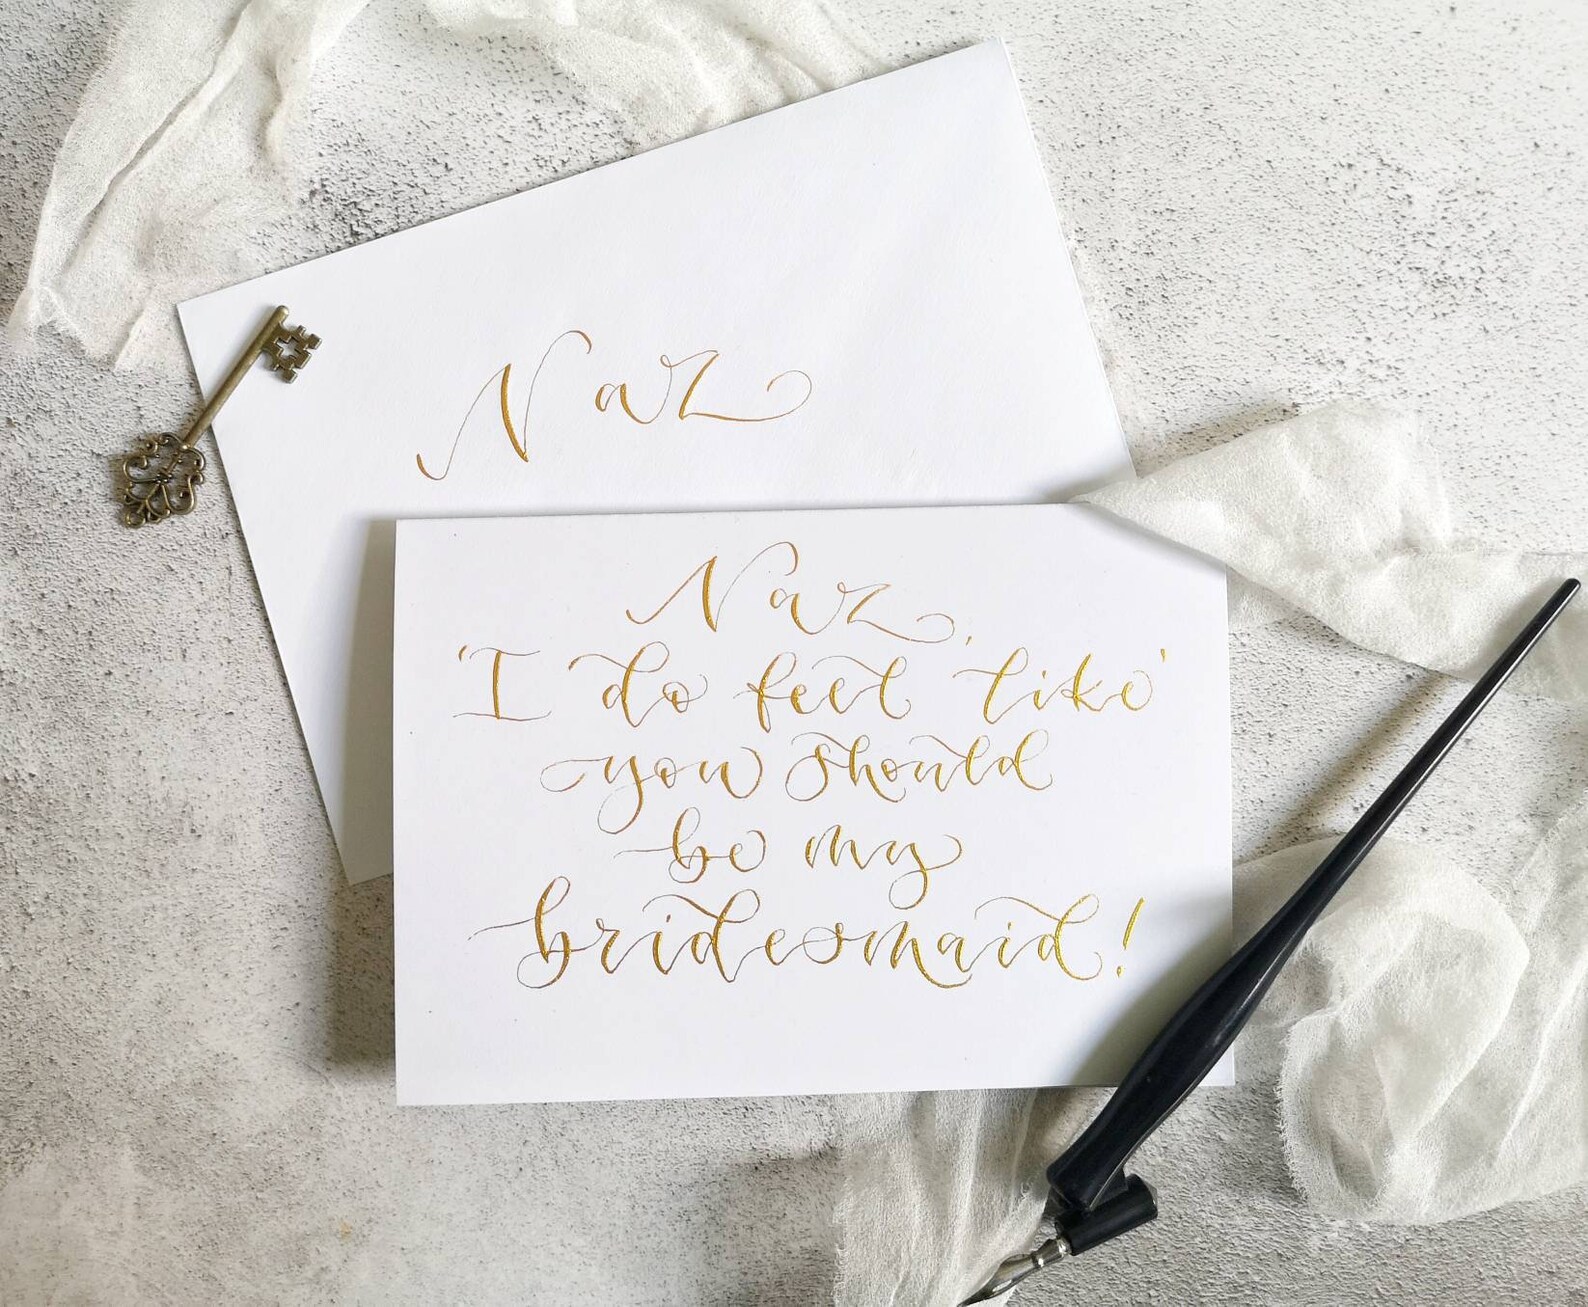 Naz
Naz,
'I do feel 'like'
you should
be my
bridesmaid!